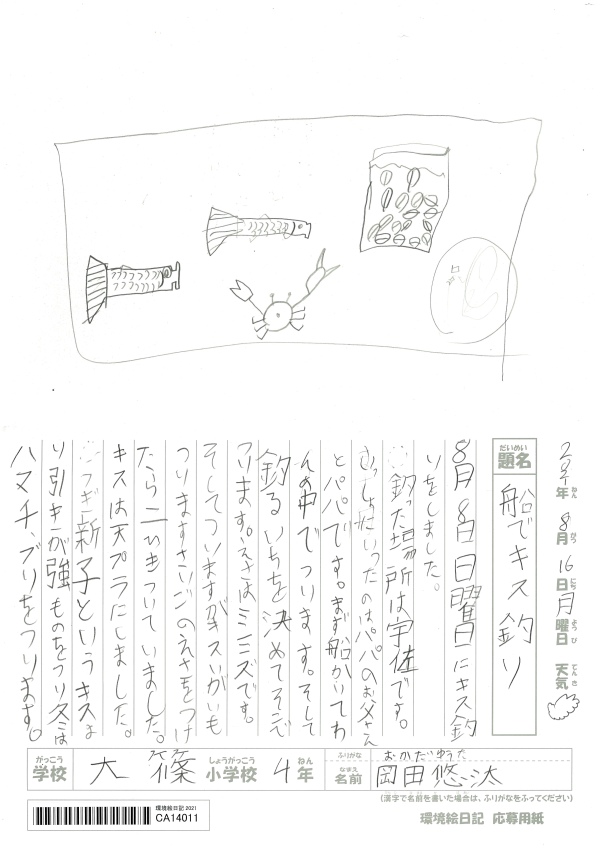 年 8月 16日 月曜日 天気
ねん がつ にち ようび てんき
題名 船でキス釣り
だいめい
8月8日日曜日にキス釣
りをしました。
釣った場所は宇佐です。
いっしょにいったのはパパのお父さん
とパパです。まず船がいてわ
んの中でつります。そして
釣るいちを決めてそこで
つります。えさはミミズです。
そしてついますがキスいがいも
つりますさいごのえさをつけ
たら二ひきついていました。
キスは天プラにしました。
つぎ新子というキスよ
り引きが強いものをつり冬は
ハマチ、ブリをつります。
がっこう しょうがっこう ねん
学校 大篠 小学校 4年
ふりがな おかだゆうた
なまえ
名前 岡田悠汰
(漢字で名前を書いた場合は、ふりがなをふってください)
環境絵日記2021
CA14011
環境絵日記 応募用紙